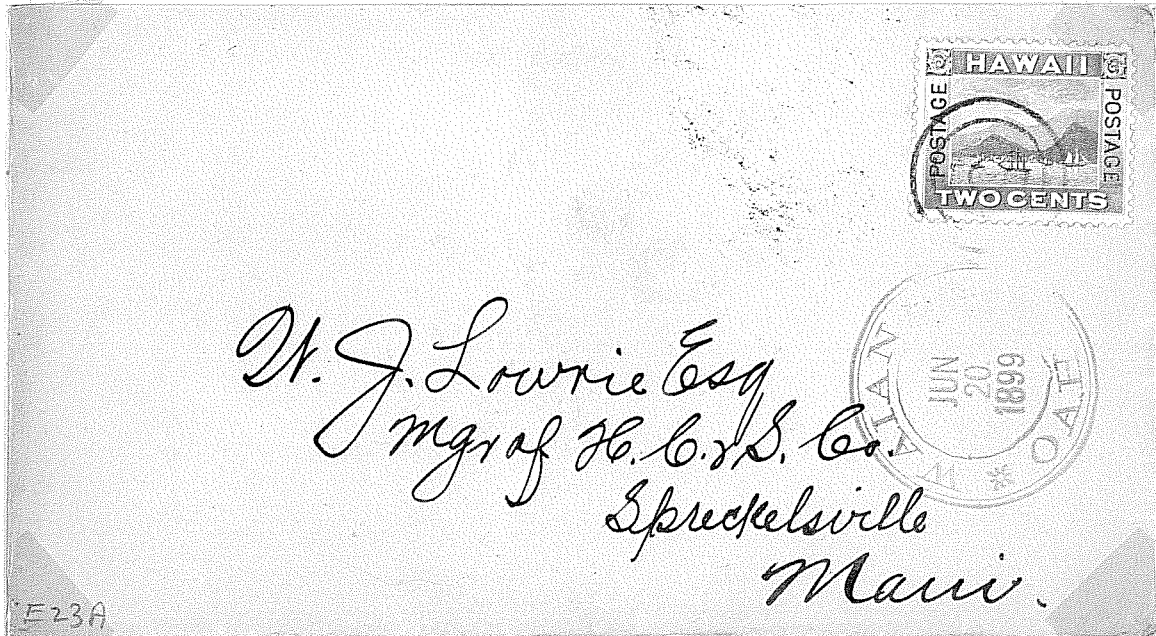 HAWAII
POSTAGE
POSTAGE
TWO CENTS
JUN
20
1899
W. J. Lowrie Esq
Mgr of H. C. & S. Co.
Spreckelsville
Maui.
E23A